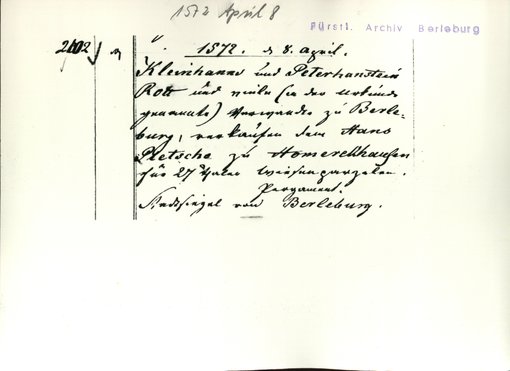 1572 April 8
Fürstl. Archiv Berleburg
1572. d 8. April.
Kleinhanns und Peterhanstein
Rott und viele (in der Urkunde
genannte) Verwandte zu Berle-
burg, verkaufen dem Hans
Pletsche zu Homerckhausen
für 27 Thaler Wiesenparzelen.
Pergament.
Stadtsiegel von Berleburg.